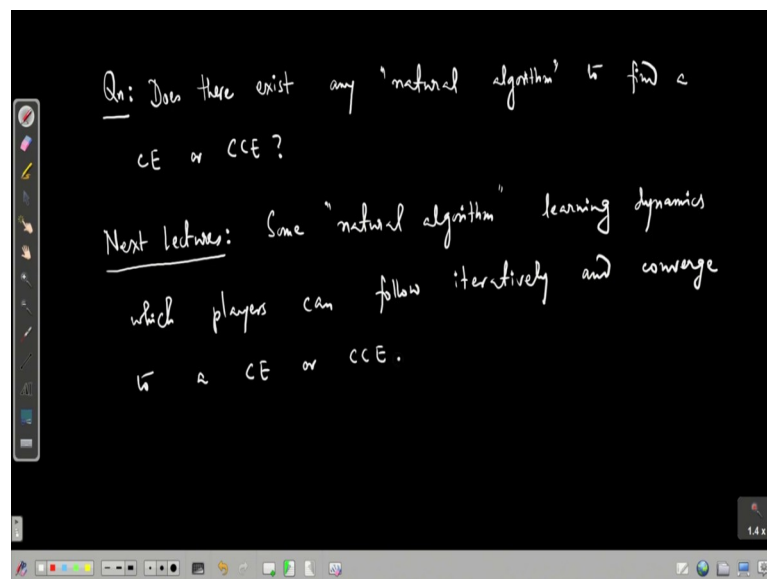 Qn: Does there exist any "natural algorithm" to find a
CE or CCE?
Next lectures: Some "natural algorithm" learning dynamics
which players can follow iteratively and converge
to a CE or CCE.
1.4 x